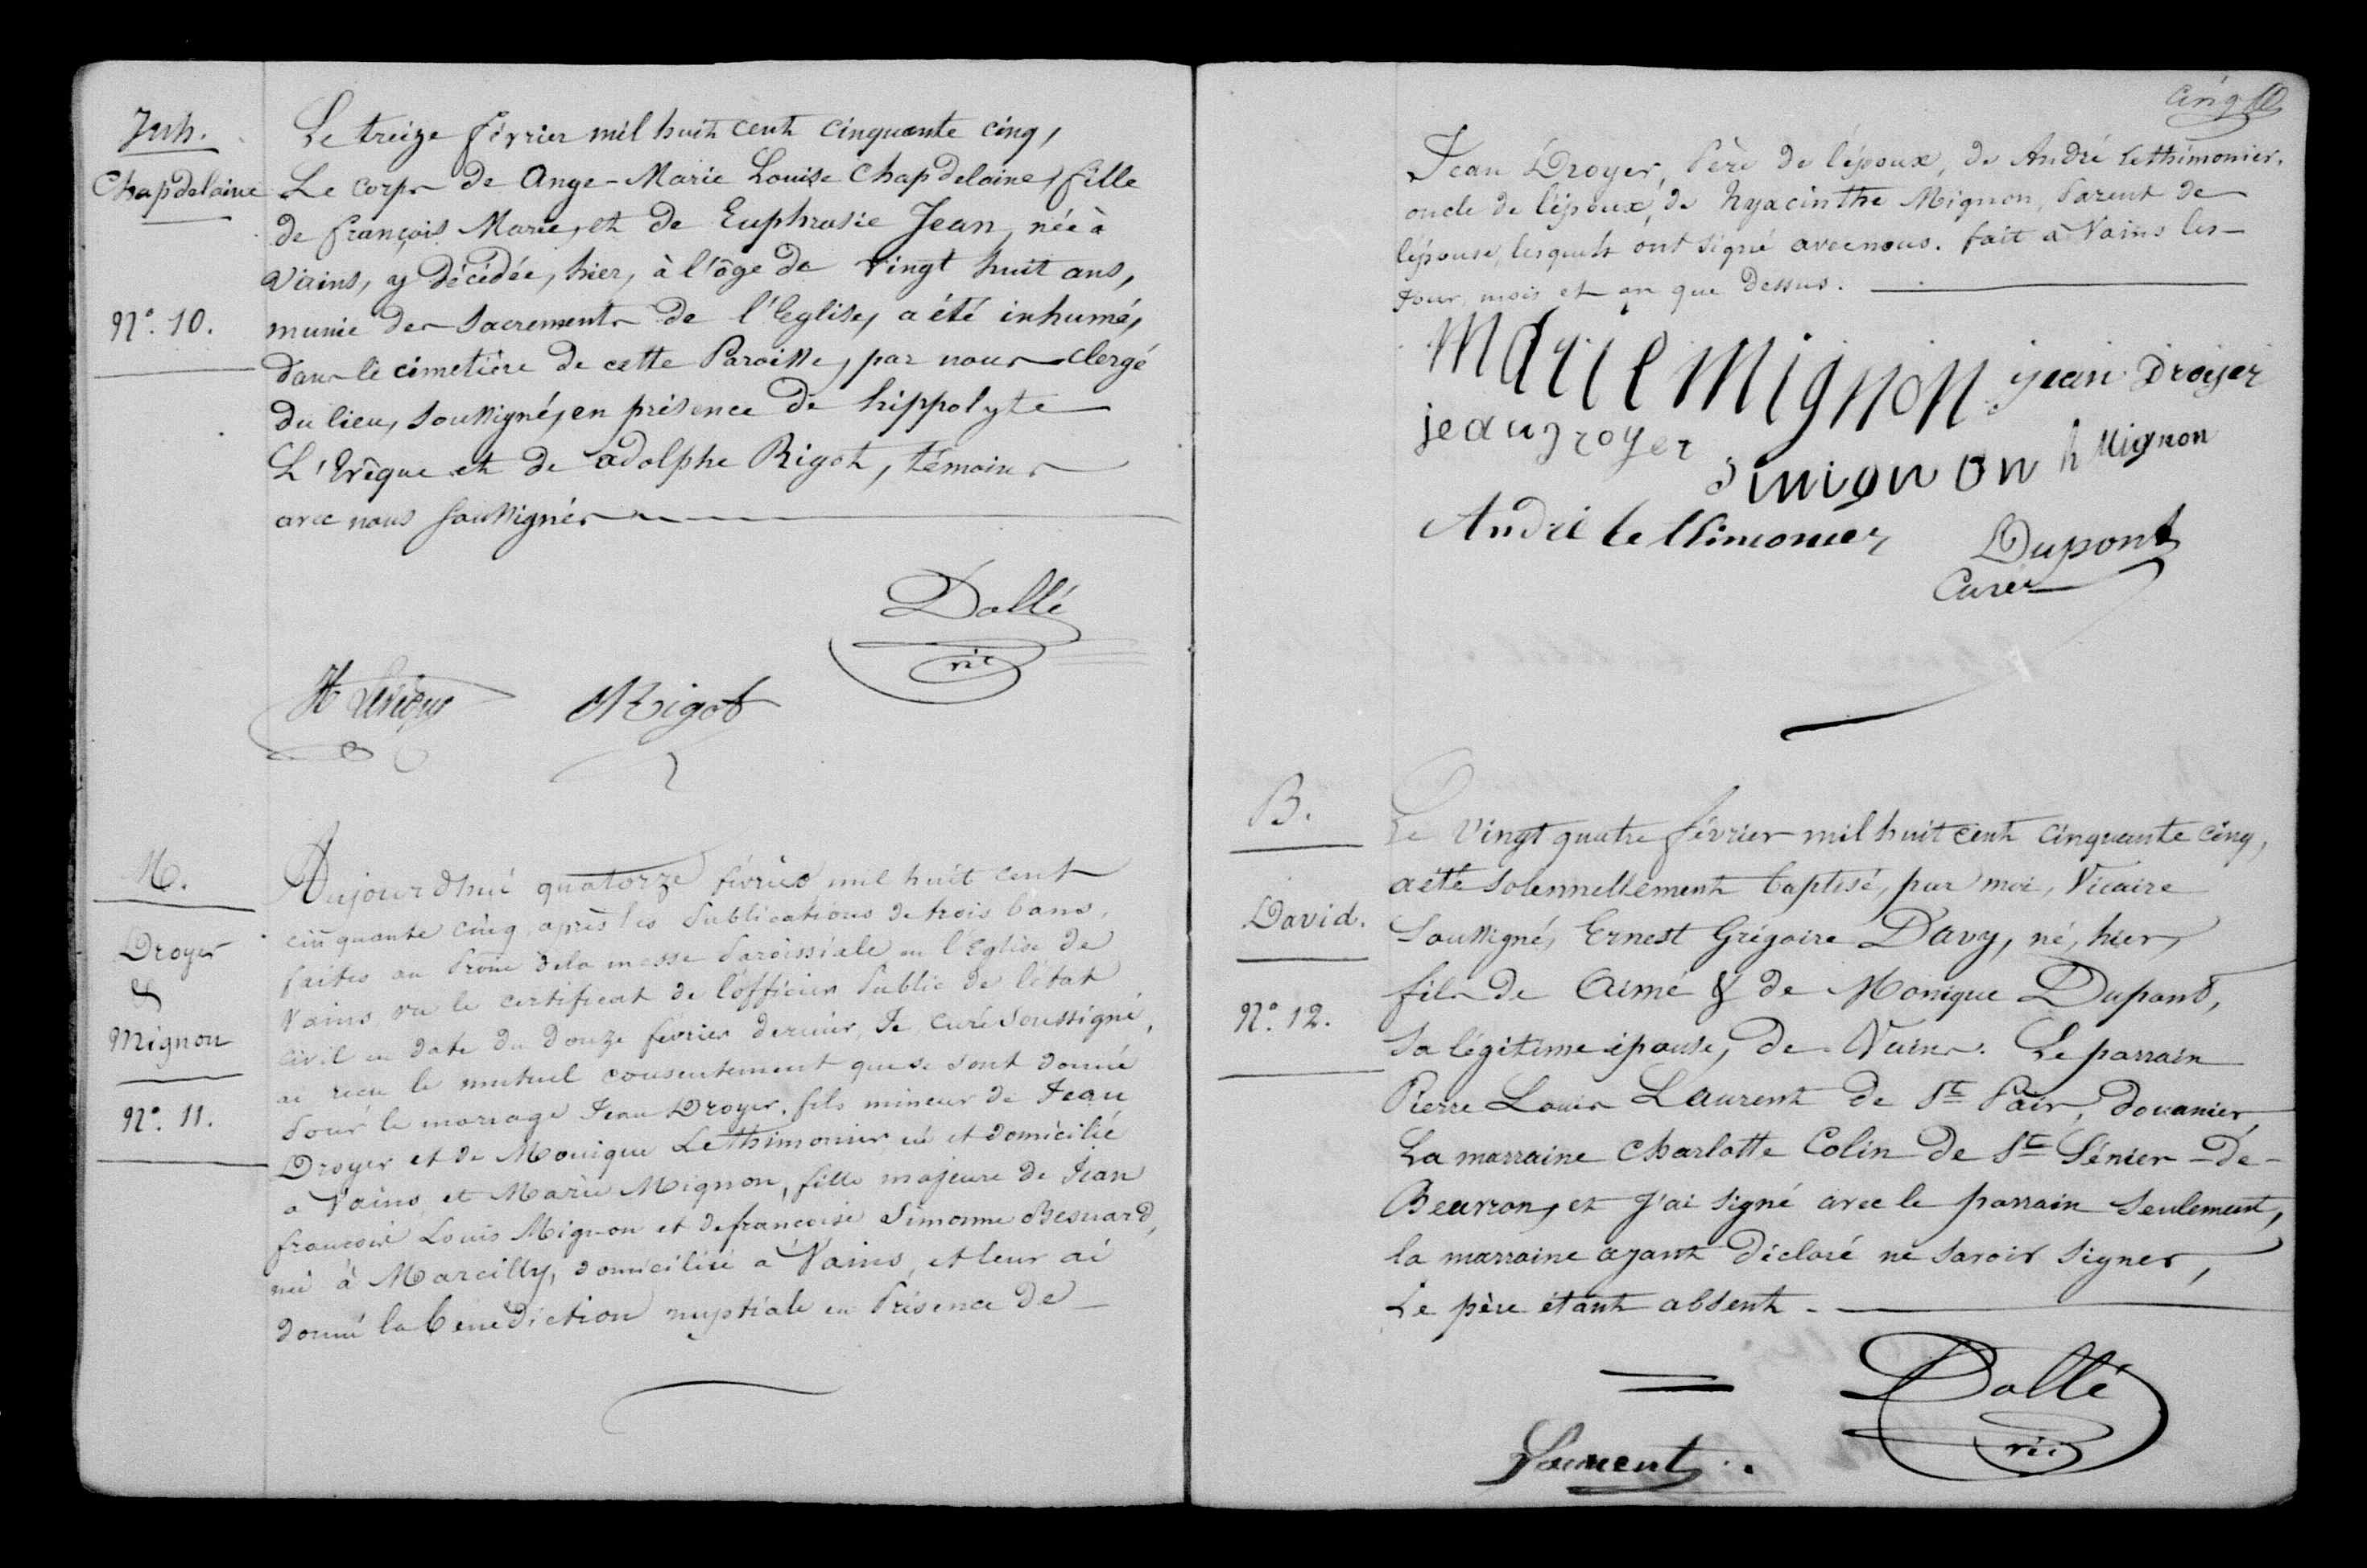 Inh.
Chapdelaine
N.° 10.
Le treize février mil huit cent cinquante cinq,
Le corps de Ange-Marie Louise Chapdelaine, fille
de françois Marie, et de Euphrasie Jean, née à
Vains, y décédée, hier, à l'âge de vingt huit ans,
munie des sacrements de l'Eglise, a été inhumé,
dans le cimetière de cette Paroisse, par nous clergé
du lieu, soussigné, en présence de hippolyte
L'Evêque et de adolphe Rigot, témoins
avec nous soussignés
Dallé
vic
H Levêque Rigot
M.
Droyer
&
Mignon
N.° 11.
Aujourd'hui quatorze février mil huit cent
cinquante cinq, après les Publications de trois bans,
faites au Prône de la messe Paroissiale en l'Eglise de
Vains vu le certificat de l'officier Public de l'état
civil en date du douze février dernier, Je curé soussigné,
ai reçu le mutuel consentement que se sont donné
Pour le mariage Jean Droyer, fils mineur de Jean
Droyer et de Monique Lethimonier né et domicilié
a Vains, et Marie Mignon, fille majeure de Jean
françois Louis Mignon et de françoise Simonne Besnard,
née à Marcilly, domiciliée a Vains, et leur ai
donné la bénédiction nuptiale en Présence de
cinq
Jean Droyer, Père de l'époux, de André Lethimonier,
oncle de l'époux, de hyacinthe Mignon, Parent de
l'épouse, lesquels ont signé avec nous. fait à Vains les
Jour, mois et an que dessus.
Marie Mignon jean droyer
jean droyer
mignon h Mignon
André le thimonier Dupont
Curé
B.
David.
N.° 12.
Le vingt quatre février mil huit cent cinquante cinq,
a été solennellement baptisé, par moi, Vicaire
soussigné, Ernest Grégoire Davy, né, hier,
fils de Aimé & de Monique Dupont,
sa légitime épouse, de Vains. Le parrain
Pierre Louis Laurent de St Pair, douanier,
La marraine Charlotte Colin de St Sénier-de-
Beuvron, et j'ai signé avec le parrain seulement,
la marraine ayant déclaré ne savoir signer,
Le père étant absent.
Dallé
vic
Laurent